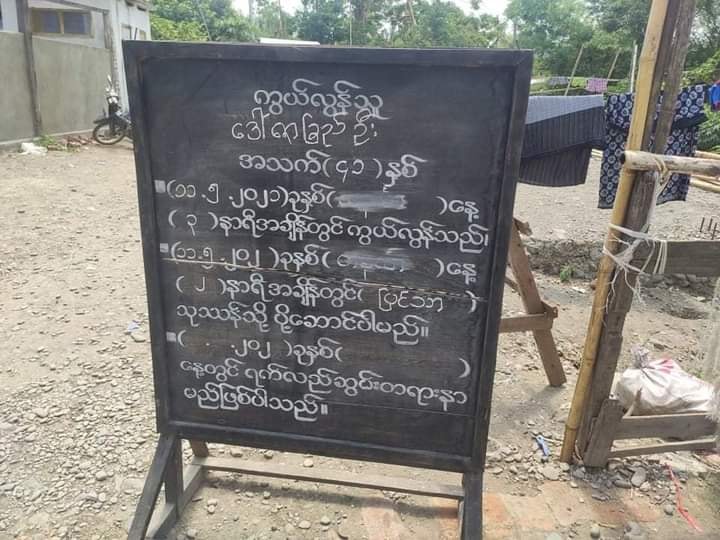 ကွယ်လွန်သူ
ဒေါ် ရာပြည့် ဦး
အသက် ( ၄၁ ) နှစ်
(၁၁ .၅ .၂၀၂၁) ခုနှစ် ( ) နေ့
( ၃ ) နာရီအချိန်တွင် ကွယ်လွန်သည်၊
(၁၁ .၅ .၂၀၂ ) ခုနှစ် ( ) နေ့
( ၂ ) နာရီ အချိန်တွင် ( )
သုဿန်သို့ ပို့ဆောင်ပါမည်။
( . .၂၀၂ ) ခုနှစ် ( )
နေ့တွင် ရက်လည်ဆွမ်းတရားနာ
မည်ဖြစ်ပါသည်။